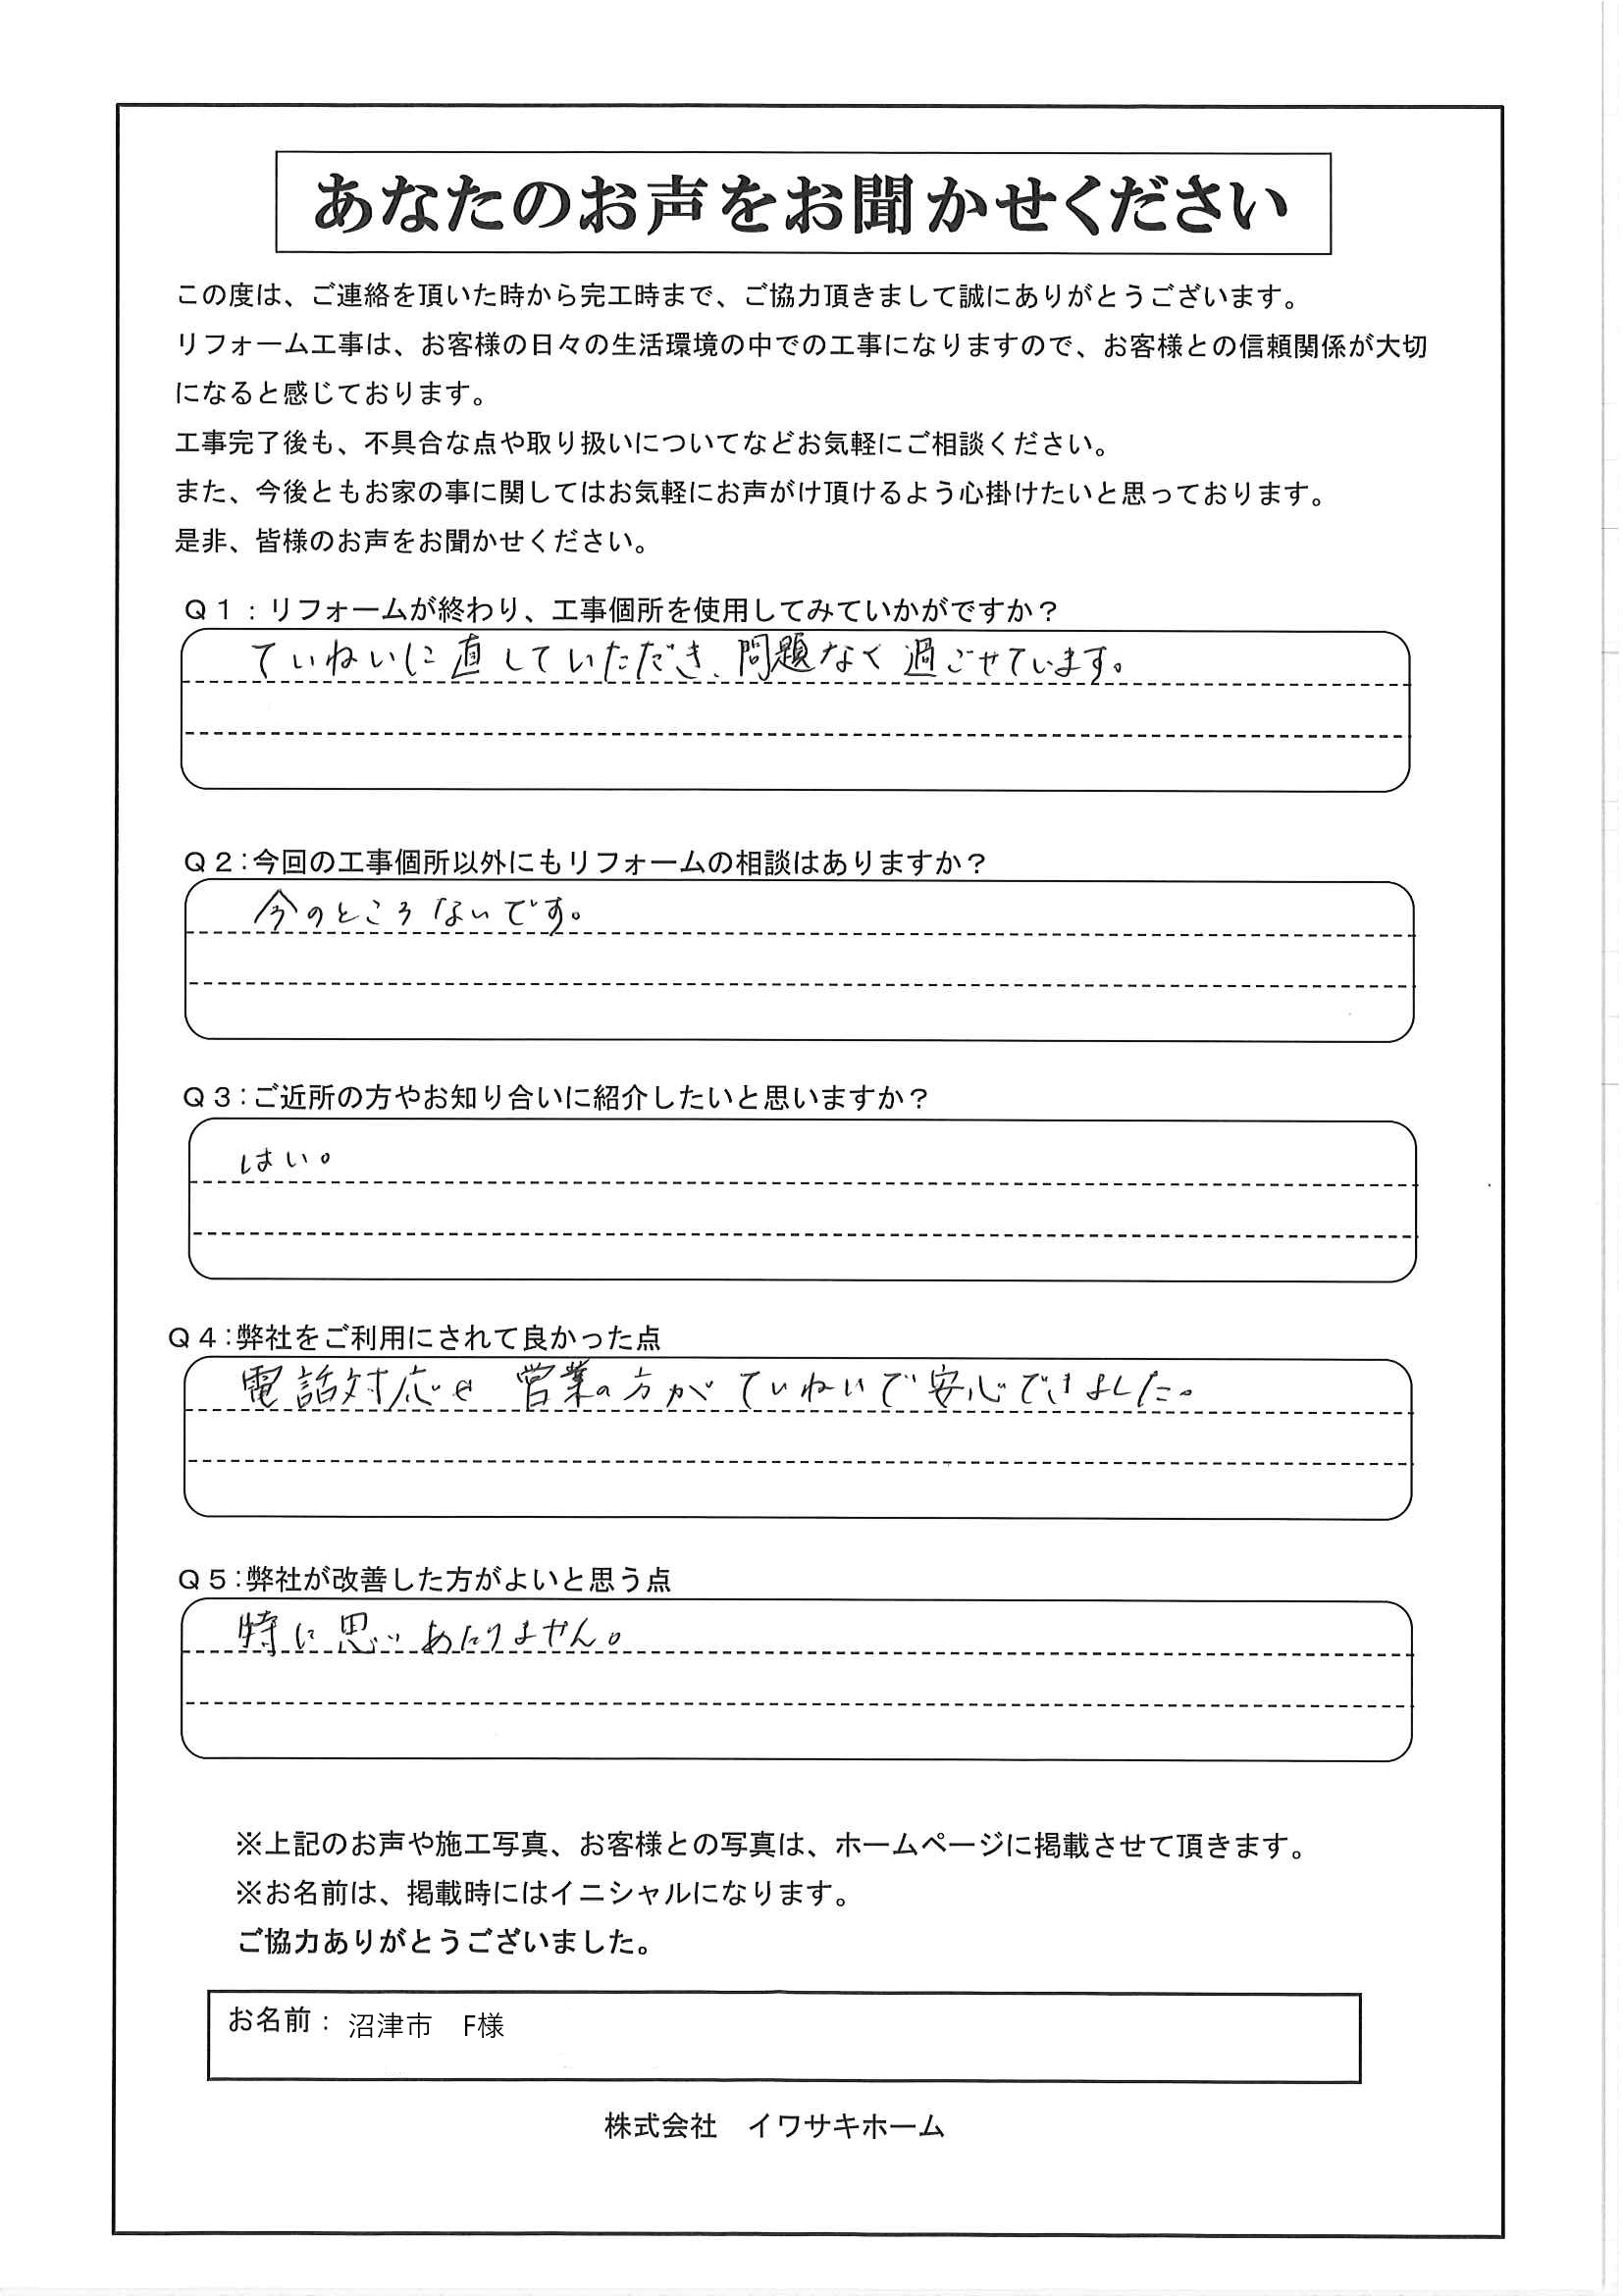 あなたのお声をお聞かせください
この度は、ご連絡を頂いた時から完工時まで、ご協力頂きまして誠にありがとうございます。
リフォーム工事は、お客様の日々の生活環境の中での工事になりますので、お客様との信頼関係が大切
になると感じております。
工事完了後も、不具合な点や取り扱いについてなどお気軽にご相談ください。
また、今後ともお家の事に関してはお気軽にお声がけ頂けるよう心掛けたいと思っております。
是非、皆様のお声をお聞かせください。
Q1：リフォームが終わり、工事個所を使用してみていかがですか？
ていねいに直していただき、問題なく過ごせています。
Q2：今回の工事個所以外にもリフォームの相談はありますか？
今のところないです。
Q3：ご近所の方やお知り合いに紹介したいと思いますか？
はい。
Q4：弊社をご利用にされて良かった点
電話対応や営業の方がていねいで安心できました。
Q5：弊社が改善した方がよいと思う点
特に思いあたりません。
※上記のお声や施工写真、お客様との写真は、ホームページに掲載させて頂きます。
※お名前は、掲載時にはイニシャルになります。
ご協力ありがとうございました。
お名前：沼津市　F様
株式会社　イワサキホーム